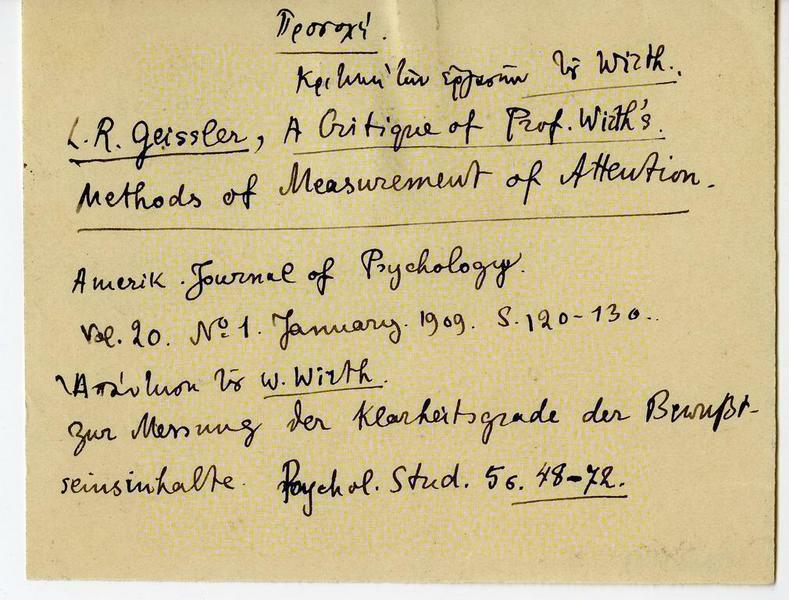 Προσοχή.
Κριτική τῶν ἐργασιῶν τοῦ Wirth.
L.R. Geissler, A Critique of Prof. Wirth's.
Methods of Measurement of Attention.
Amerik. Journal of Psychology.
Vol. 20. No 1. January. 1909. S. 120-130..
Ἀπάντησις τοῦ W. Wirth.
zur Messung der Klarheitsgrade der Bewußt-
seinsinhalte. Psychol. Stud. 5 S. 48-72.